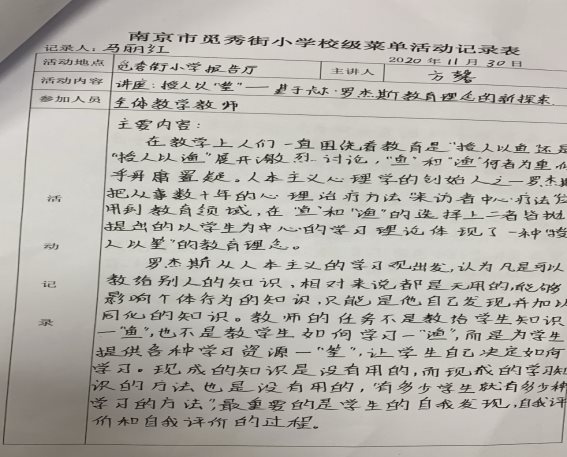 南京市觅秀街小学校级菜单活动记录表
记录人：马丽红 2020年11月30日
活动地点 觅秀街小学报告厅 主讲人 方馨
活动内容 讲座：授人以"筌"——基于卡尔·罗杰斯教育理念的新探索
参加人员 全体教学教师
活动记录
主要内容：
在教学上人们一直围绕着教育是"授人以鱼还是
"授人以渔"展开激烈讨论，"鱼"和"渔"何者为重
毋庸置疑。人本主义心理学的创始人之一罗杰斯
把从事数十年的心理治疗方法"来访者中心"疗法
用到教育领域，在"鱼"和"渔"的选择上二者皆抛
提出的以学生为中心的学习理论体现了一种"授
人以筌"的教育理念。
罗杰斯从人本主义的学习观出发，认为凡是可以
教给别人的知识，相对来说都是无用的，能够
影响个体行为的知识，只能是他自己发现并加以
同化的知识。教师的任务不是教给学生知识
—"鱼"，也不是教学生如何学习—"渔"，而是为学生
提供各种学习资源—"筌"，让学生自己决定如何
学习。现成的知识是没有用的，而现成的学习知
识的方法也是没有用的，"有多少学生就有多少种
学习的方法"，最重要的是学生的自我发现，自我评
价和自我评价的过程。